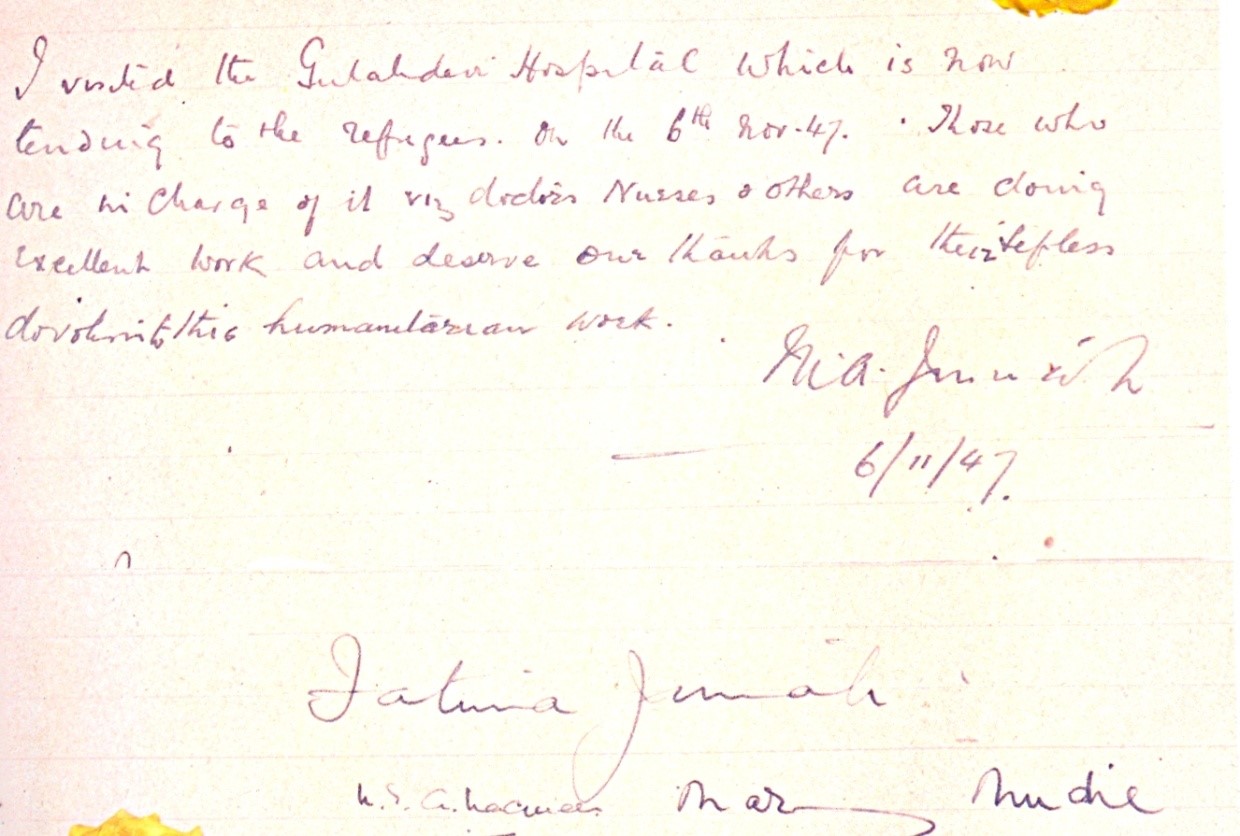 I visited the Gulabdevi Hospital which is now
tending to the refugees. On the 6th Nov. 47. Those who
are in charge of it viz doctors Nurses & others are doing
excellent work and deserve our thanks for their
this humanitarian work.
M.A. Jinnah
6/11/47.
Fatima Jinnah
Mudie